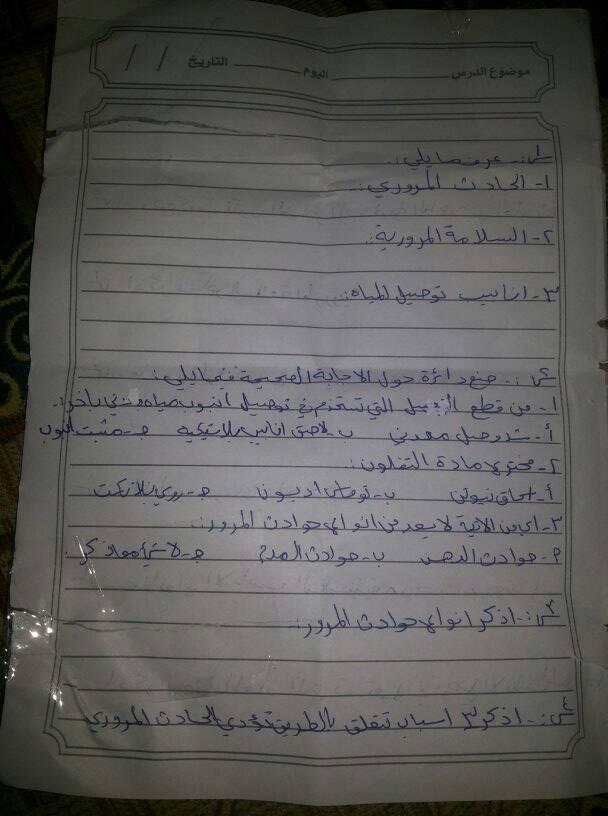 موضوع الدرس اليوم التاريخ / /
س١:- عرف مايلي:
١- الحادث المروري:
٢- السلامة المرورية:
٣- انابيب توصيل المياه:
س٢:- ضع دائرة حول الاجابة الصحيحة فيما يلي:
١- من قطع التي تستخدم في توصيل انبوب مياه معدني بأخر:
أ- شد وصل معدني ب- لاصق انابيب بلاستيكية ج- مثبت انبوب
٢- مخترع مادة التفلون:
أ- اسحاق نيوتن ب- توماس اديسون ج- روي بلانكت
٣- اي من الاتية لا يعد من انواع حوادث المرور:
أ- حوادث الدهس ب- حوادث الصدم ج- لا شيء مما ذكر
س٣:- اذكر انواع حوادث المرور:
س٤:- اذكر ٣ اسباب تتعلق بالطريق تؤدي الحادث المروري